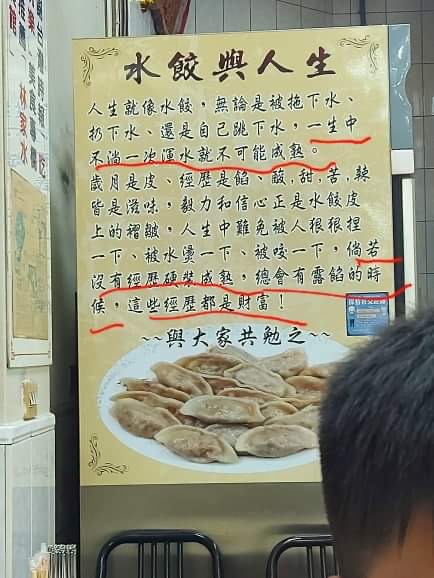 水餃與人生
人生就像水餃，無論是被拖下水、
扔下水、還是自己跳下水，一生中
不淌一次渾水就不可能成熟。
歲月是皮、經歷是餡、酸,甜,苦,辣
皆是滋味，毅力和信心正是水餃皮
上的褶皺，人生中難免被人狠狠捏
一下、被水燙一下、被咬一下，倘若
沒有經歷硬裝成熟，總會有露餡的時
候，這些經歷都是財富！
~~與大家共勉之~~
林家水